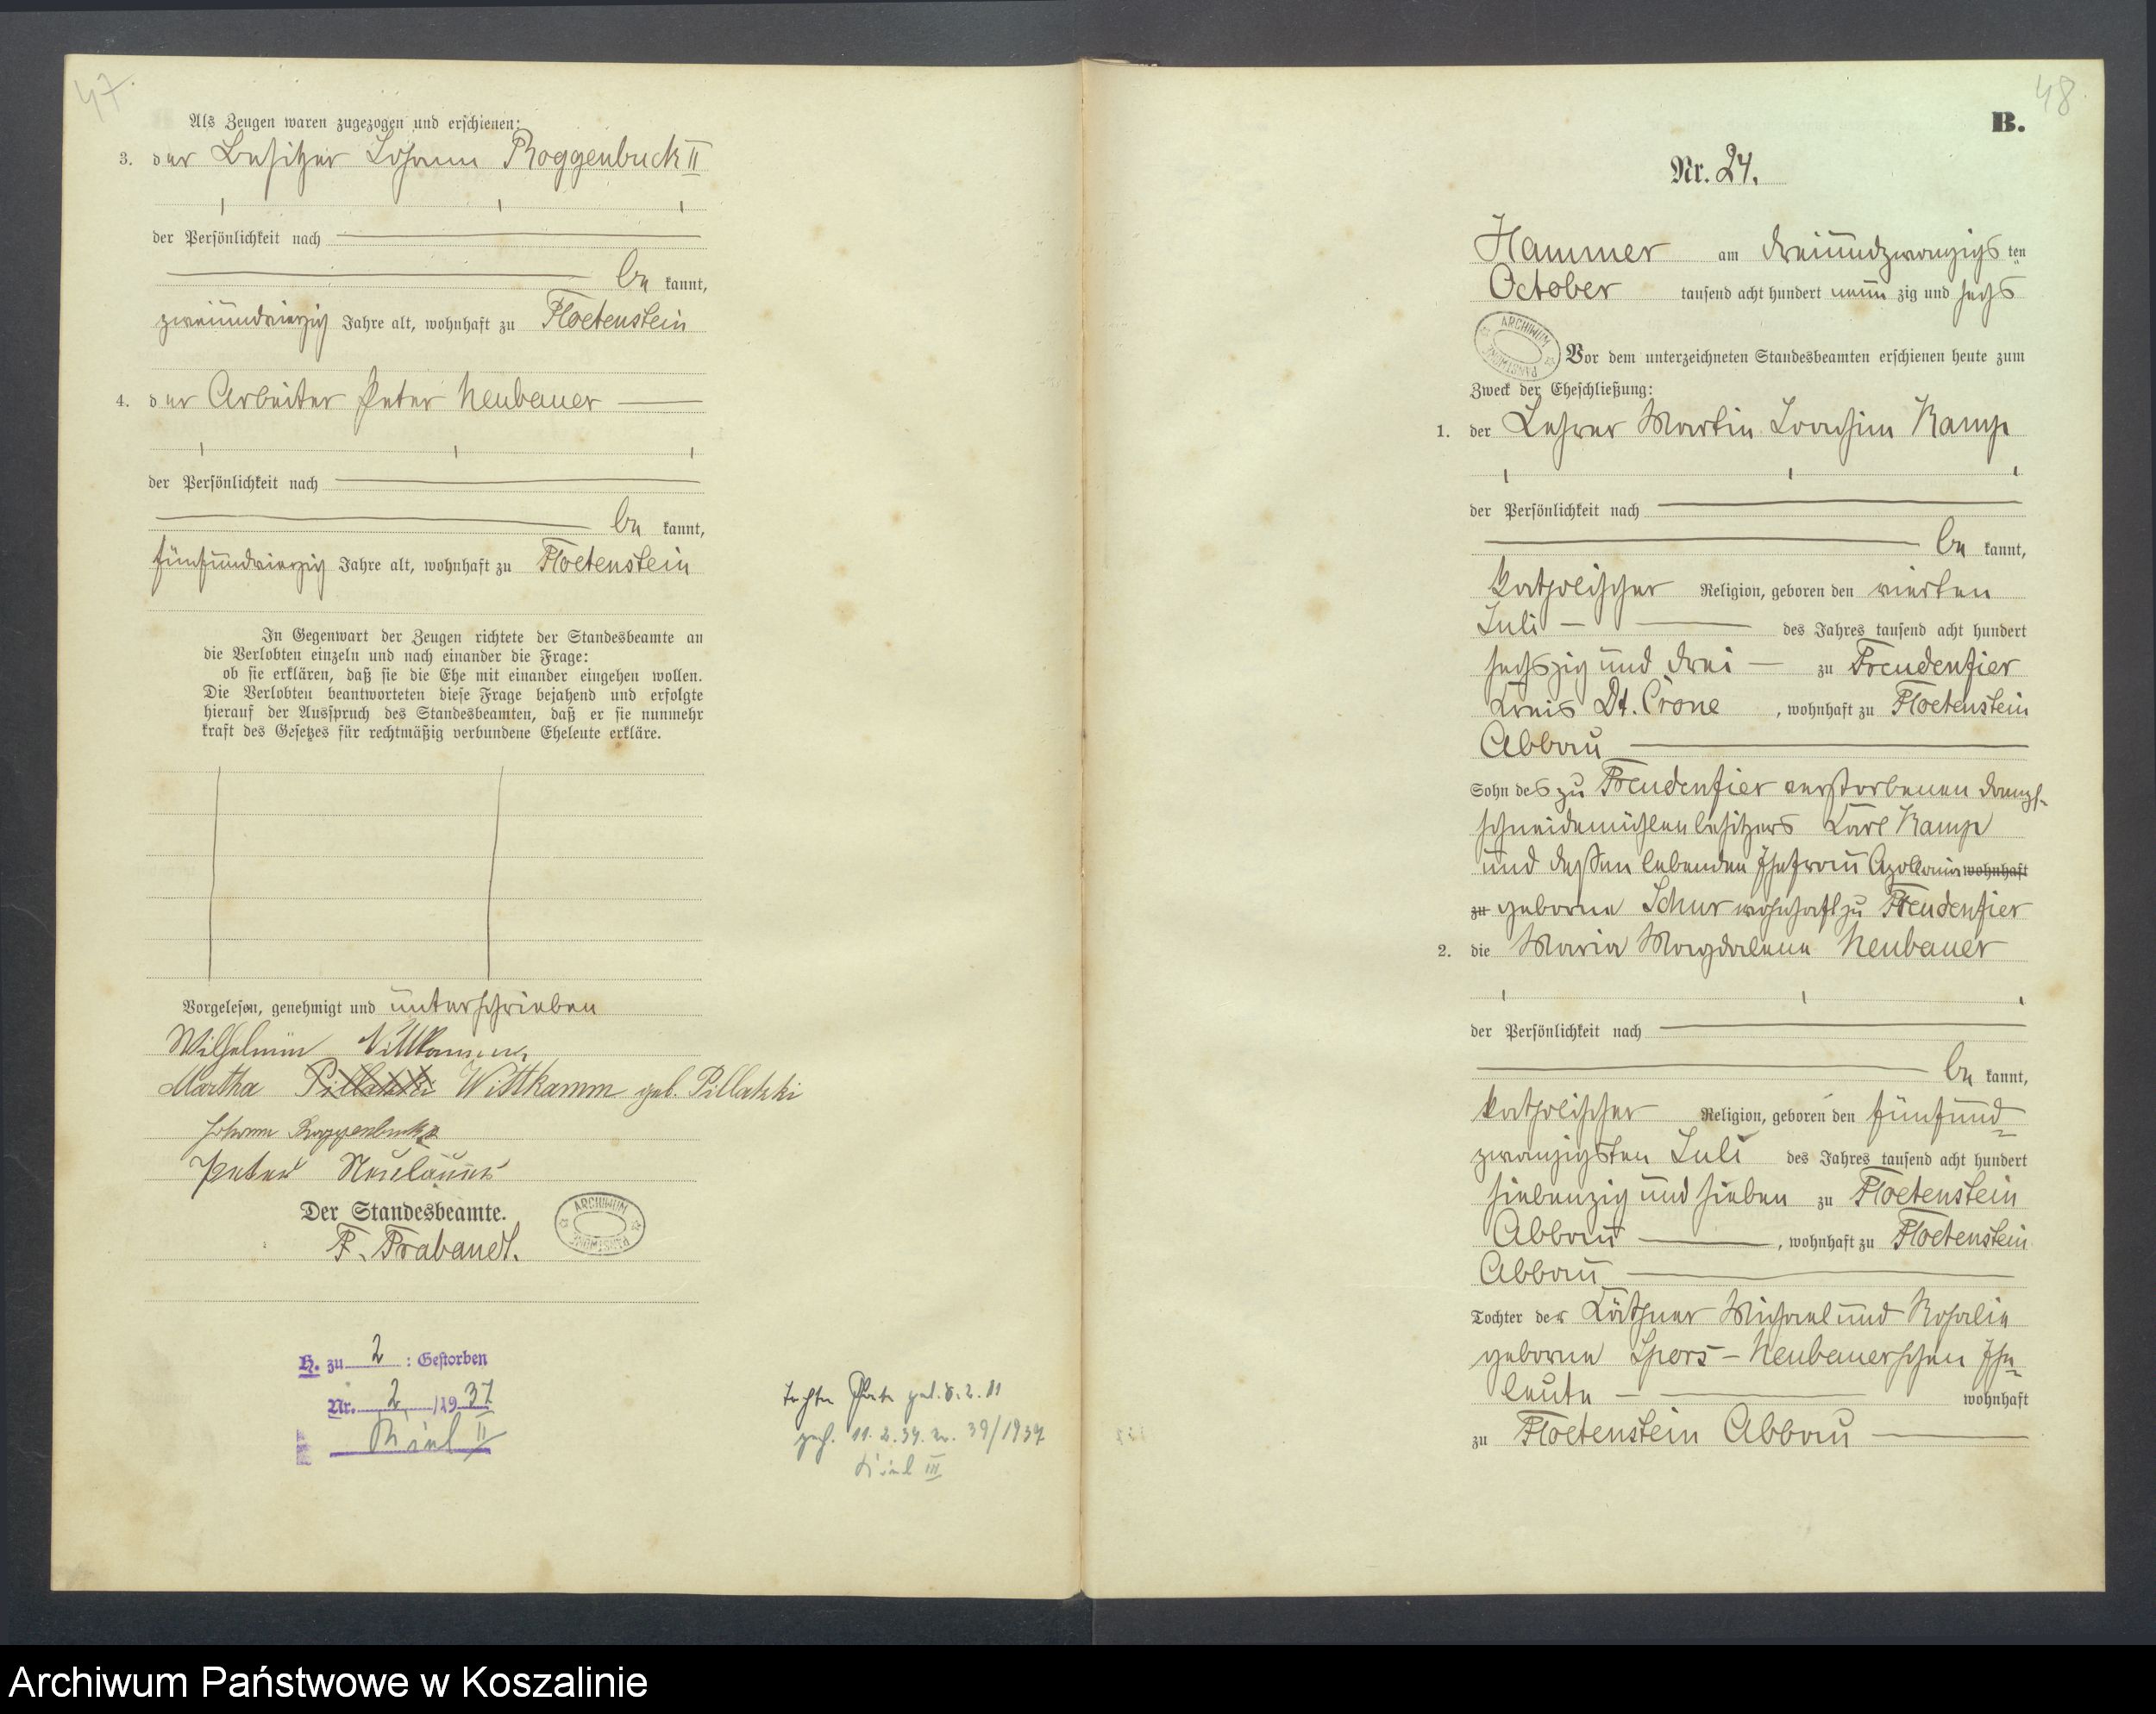 47.
Als Zeugen waren zugezogen und erschienen:
3. der Besitzer Johann Roggenbuck II
der Persönlichkeit nach
be kannt,
zweiundvierzig Jahre alt, wohnhaft zu Floetenstein
4. der Arbeiter Peter Neubauer
der Persönlichkeit nach
be kannt,
fünfundvierzig Jahre alt, wohnhaft zu Floetenstein
In Gegenwart der Zeugen richtete der Standesbeamte an
die Verlobten einzeln und nach einander die Frage:
ob sie erklären, daß sie die Ehe mit einander eingehen wollen.
Die Verlobten beantworteten diese Frage bejahend und erfolgte
hierauf der Ausspruch des Standesbeamten, daß er sie nunmehr
kraft des Gesetzes für rechtmäßig verbundene Eheleute erkläre.
Vorgelesen, genehmigt und unterschrieben
Wilhelm Wittkamm
Martha Pillatzki Wittkamm geb. Pillatzki
Johann Roggenbuck II
Peter Neubauer
Der Standesbeamte.
F. Prabandt.
ARCHIWUM PAŃSTWOWE
H. zu 2 : Gestorben
Nr. 2 /1937
II
geb. 8.2.11
11.2.39. Nr. 39/1937
III
48.
B.
Nr. 24.
Hammer am dreiundzwanzigs ten
October tausend acht hundert neun zig und sechs
ARCHIWUM PAŃSTWOWE
Vor dem unterzeichneten Standesbeamten erschienen heute zum
Zweck der Eheschließung:
1. der Lehrer Martin Joachim Kamp
der Persönlichkeit nach
be kannt,
katholischer Religion, geboren den vierten
Juli des Jahres tausend acht hundert
sechszig und drei zu Freudenfier
Kreis Dt. Crone, wohnhaft zu Floetenstein
Abbau
Sohn des zu Freudenfier verstorbenen Dampf-
schneidemühlenbesitzers Karl Kamp
und dessen lebenden Ehefrau Apollonia wohnhaft
zu geborne Schur wohnhaft zu Freudenfier
2. die Maria Magdalena Neubauer
der Persönlichkeit nach
be kannt,
katholischer Religion, geboren den fünfund=
zwanzigsten Juli des Jahres tausend acht hundert
siebenzig und sieben zu Floetenstein
Abbau, wohnhaft zu Floetenstein
Abbau
Tochter der Käthner Michael und Rosalie
geborne Spors-Neubauerschen Ehe=
leute wohnhaft
zu Floetenstein Abbau
Archiwum Państwowe w Koszalinie